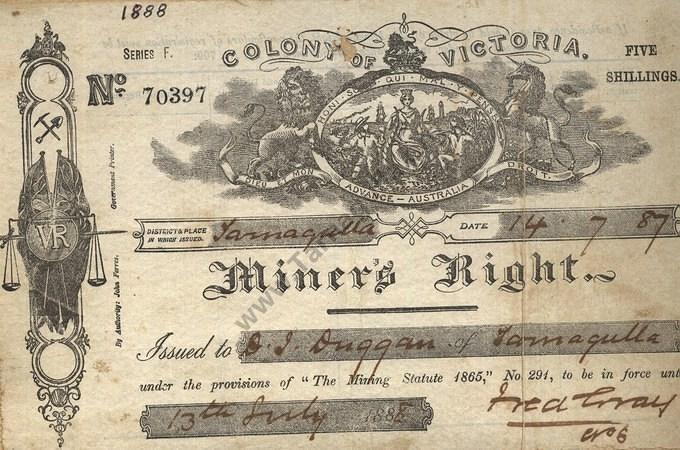 1888
SERIES F.
COLONY OF VICTORIA.
FIVE
SHILLINGS.
No 70397
HONI SOIT QUI MAL Y PENSE
DIEU ET MON DROIT.
ADVANCE - AUSTRALIA
VR
By Authority: John Ferres, Government Printer.
DISTRICT & PLACE
IN WHICH ISSUED.
Tarnagulla
DATE 14.7.87
Miner's Right.
Issued to D. J. Duggan of Tarnagulla
under the provisions of "The Mining Statute 1865," No 291, to be in force unt
13th July 1888
Fred Gray